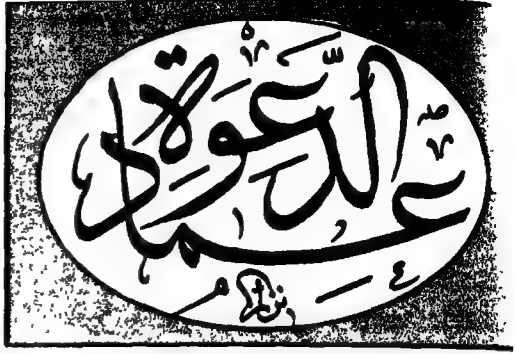 عماد الدعوة